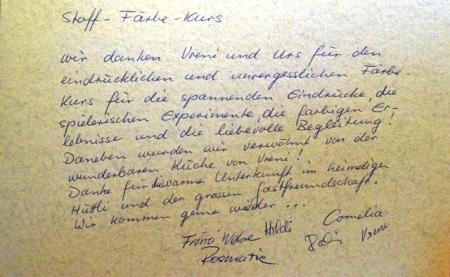 Stoff-Färbe-Kurs
Wir danken Vreni und Urs für den
eindrücklichen und unvergesslichen Färbe-
Kurs für die spannenden Eindrücke, die
spielerischen Experimente, die farbigen Er-
lebnisse und die liebevolle Begleitung!
Daneben wurden wir verwöhnt von der
wunderbaren Küche von Vreni!
Danke für die warme Unterkunft im heimeligen
Hüttli und der grossen Gastfreundschaft.
Wir kommen gerne wieder ...
Hildi Cornelia
Rosmarie